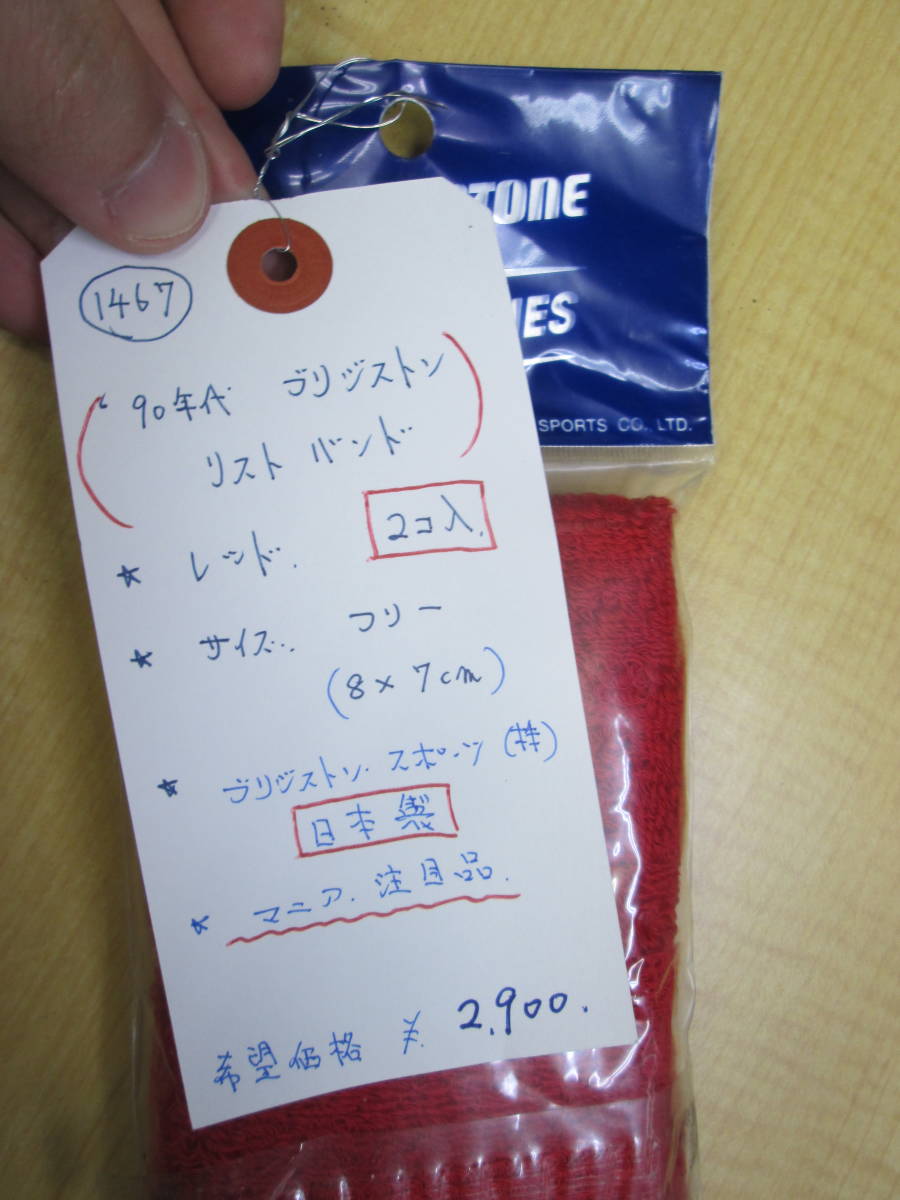 1467
'90年代 ブリジストン
リスト バンド
2コ入.
★ レッド.
★ サイズ.. フリー
(8×7cm)
★ ブリジストン. スポーツ (株)
日本製
★ マニア. 注目品.
希望価格 ¥. 2,900.
TONE
IES
SPORTS CO. LTD.